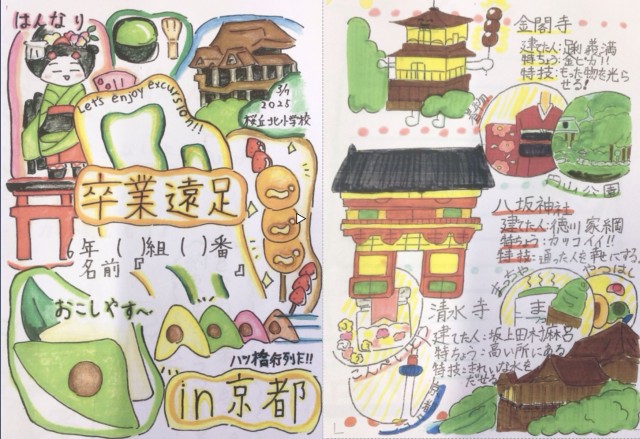 はんなり
Let's enjoy excursion!!
3/7
2025
桜丘北小学校
卒業遠足
6年( )組( )番
名前『 』
おこしやす~
八ッ橋行列だ!!
in京都
金閣寺
建てた人:足利義満
特ちょう:金ピカ!!
特技:もった物を光ら
せる!
円山公園
八坂神社
建てた人:徳川家綱
特ちょう:カッコイイ!!
特技:通った人を
まっちゃ
やつはし
清水寺
建てた人:坂上田村麻呂
特ちょう:高い所にある
特技:きれいな水を
だせる